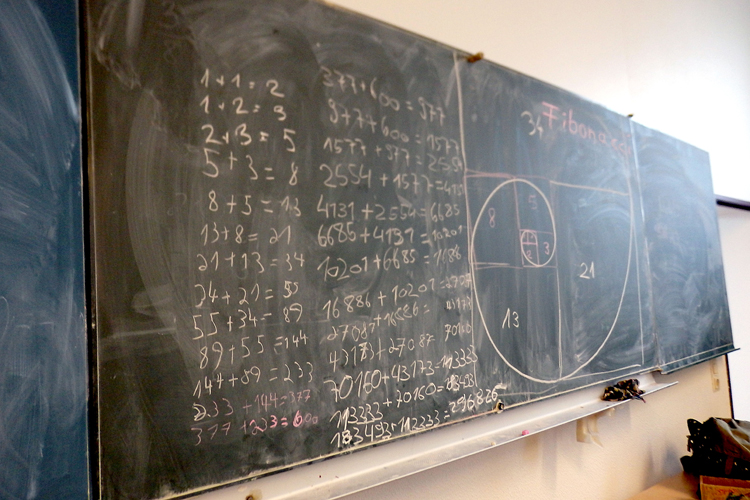 1+1=2
1+2=3
2+3=5
5+3=8
8+5=13
13+8=21
21+13=34
34+21=55
55+34=89
89+55=144
144+89=233
233+144=377
377+233=600
377+600=977
977+600=1577
1577+977=2554
2554+1577=4131
4131+2554=6685
6685+4131=10201
10201+6685=
16886+10201=
27087+16886=
43173+27087=
70160+43173=113333
113333+70160=
34
Fibonacci
8
5
3
21
13